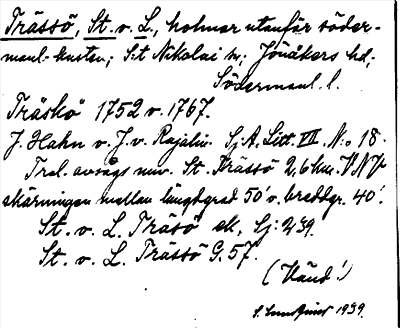 Trässö, St. v. L., holmar utanför söder-
manl-kusten; S:t Nikolai sn; Jönåkers hd;
Södermanl. l.
Träskö 1752 v. 1767.
J. Hahn v. J. v. Rajalin. Sj. A. Litt. VII. N:o 18.
Tral. avsågs nuv. St. Trässö 2,6 km. VNV
skärningen mellan längdgrad 50' v. breddgr. 40'.
St. v. L. Träsö ek, Sj: 239.
St. v. L. Trässö G. 57.
(Vänd!)
1939.